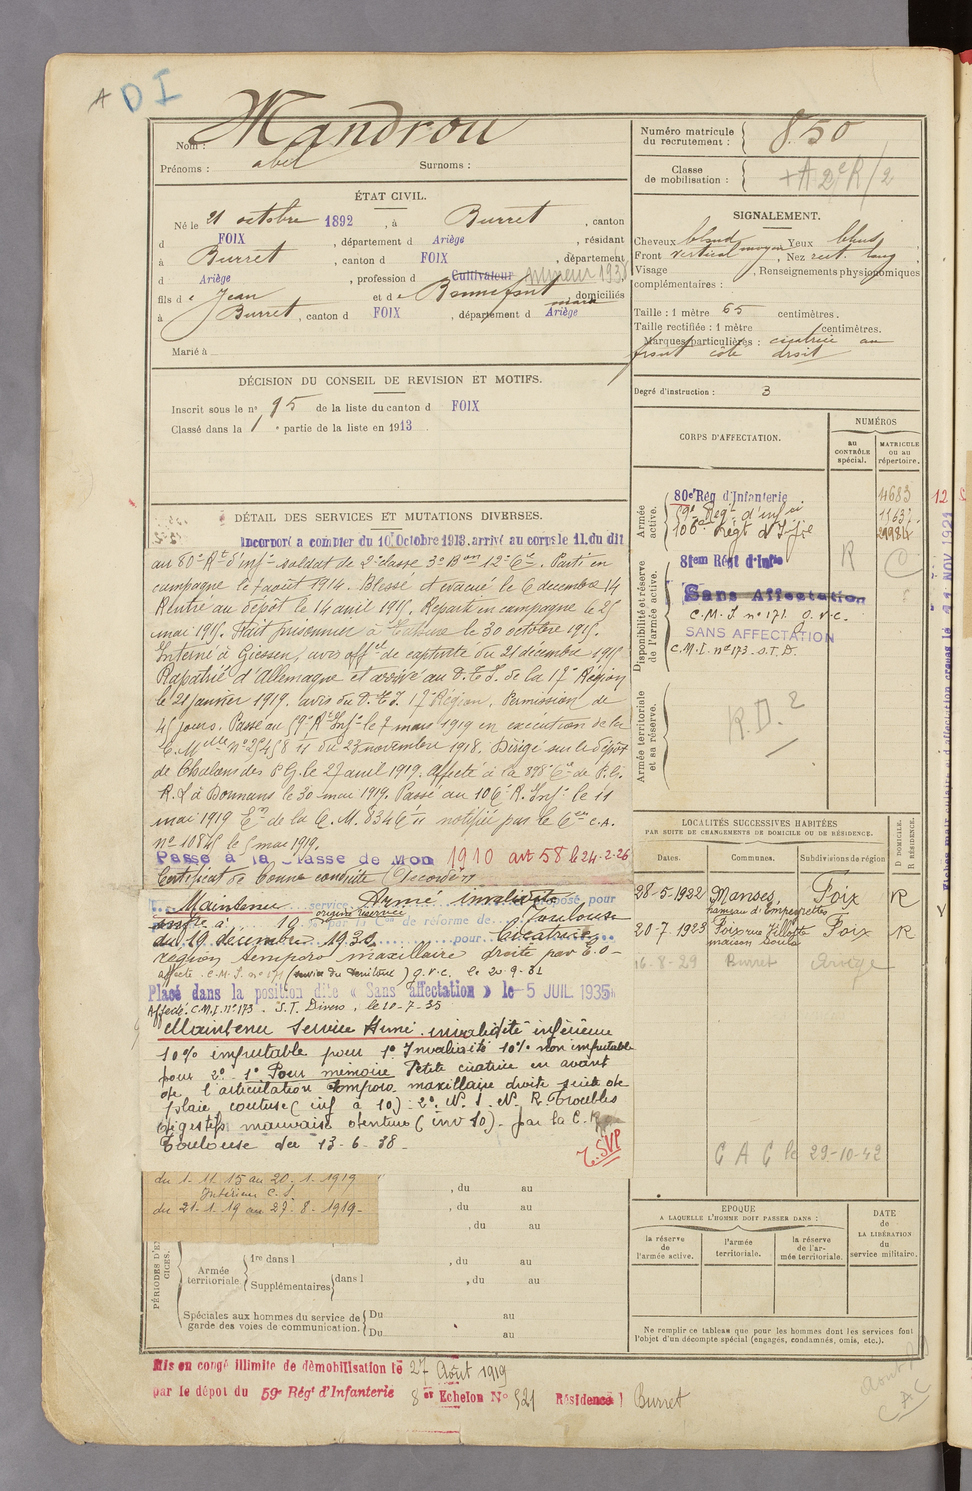 A D I
Mandrou
Nom :
abel
Prénoms : Surnoms :
ÉTAT CIVIL.
Né le 21 octobre 1892, à Burret, canton
d FOIX, département d Ariège, résidant
à Burret, canton d FOIX, département
d Ariège, profession d Cultivateur mineur
fils de Jean et de Bonnefont domiciliés
à Burret, canton d FOIX, département d Ariège
Marié à
DÉCISION DU CONSEIL DE REVISION ET MOTIFS.
Inscrit sous le n° 95 de la liste du canton d FOIX
Classé dans la 1 partie de la liste en 1913
DÉTAIL DES SERVICES ET MUTATIONS DIVERSES.
Incorporé a compter du 10 Octobre 1913. arrivé au corps le 11. du dit
au 80e Rt d'infie soldat de 2e classe 3e Bon 12e Cie. Parti en
campagne le 7 août 1914. Blessé et évacué le 6 décembre 14
Rentré au dépôt le 14 avril 1915. Reparti en campagne le 25
mai 1915. Fait prisonnier à le 30 octobre 1915.
Interné à Giessen, avis offel de capture du 21 décembre 1915
Rapatrié d'Allemagne et arrivé au D.T.I. de la 17e Région
le 21 janvier 1919. avis du D.T.I. 17e Région. Permission de
45 jours. Passé au 59e Rt Infie le 7 mars 1919 en exécution de la
C. Mlle n° du 23 novembre 1918. Dirigé sur le dépôt
de Chalons des P.G. le 27 avril 1919. affecté à la 898e Cie de P.G.
R.L à Dannans le 30 mai 1919. Passé au 106e R. Infie le 11
mai 1919 de la C.M. notifié par le C.A.
n° le 5 mai 1919.
Passé à la Classe de Mon 1910 art 58 le 24-2-26
Certificat de bonne conduite "Accordé"
Maintenu service Armé invalidité
19 par la Con de réforme de Toulouse
du 19 décembre 1930 pour Cicatrice
région temporo maxillaire droite par E.O-
affecté C.M.I. n° 171 (service du territoire) G.V.C. le 20-9-31
Placé dans la position dite « Sans affectation » le 5 JUIL 1935
Affecté C.M.I. n° 173. S.T. Divers, le 10-7-35
Maintenu Service Armé invalidité inférieure
10% imputable pour 1° Invalidité 10% non imputable
pour 2° - 1° Pour mémoire Petite cicatrice en avant
de l'articulation temporo maxillaire droite suite de
plaie contuse (inf à 10) 2° N.I.N.R. Troubles
digestifs mauvaise denture (inv 10) - par la C.R.
Toulouse du 13-6-38-
T.SVP
du 1-11-15 au 20-1-1919
Intérieur C.S.
du 21-1-19 au 27-8-1919-
, du au
, du au
, du au
PÉRIODES D'EX
CICES.
Armée territoriale
1re dans l , du au
Supplémentaires dans l , du au
Spéciales aux hommes du service de garde des voies de communication.
Du au
Du au
Mis en congé illimité de démobilisation le 27 Août 1919
par le dépôt du 59e Régt d'Infanterie 8e Echelon N° 521 Résidence Burret
Numéro matricule du recrutement : 850
Classe de mobilisation : +A 2eR/2
SIGNALEMENT.
Cheveux blond Yeux bleus
Front vertical moyen, Nez rect. long
Visage, Renseignements physionomiques
complémentaires :
Taille : 1 mètre 65 centimètres.
Taille rectifiée : 1 mètre centimètres.
Marques particulières : cicatrice au
front côté droit
Degré d'instruction : 3
CORPS D'AFFECTATION.
NUMÉROS
au CONTRÔLE spécial.
MATRICULE ou au répertoire.
Armée active.
80e Rég d'Infanterie 4683
59e Regt d'infie 11637
106e Régt d'Infie
Disponibilité et réserve de l'armée active.
81em Régt d'Infie R
Sans Affectation
C.M.I n° 171. G.V.C.
SANS AFFECTATION
C.M.I. n° 173. S.T.D.
Armée territoriale et sa réserve.
R.D.2
LOCALITÉS SUCCESSIVES HABITÉES
PAR SUITE DE CHANGEMENTS DE DOMICILE OU DE RÉSIDENCE.
Dates. Communes. Subdivisions de région
D DOMICILE. R RÉSIDENCE.
28-5-1922 Manses hameau d'Empeyrottes Foix R
20-7-1923 Foix rue Villotte maison Soula Foix R
16-8-29 Burret Ariège
C A C le 29-10-42
EPOQUE
A LAQUELLE L'HOMME DOIT PASSER DANS :
la réserve de l'armée active.
l'armée territoriale.
la réserve de l'armée territoriale.
DATE de LA LIBÉRATION du service militaire.
Ne remplir ce tableau que pour les hommes dont les services font
l'objet d'un décompte spécial (engagés, condamnés, omis, etc.).